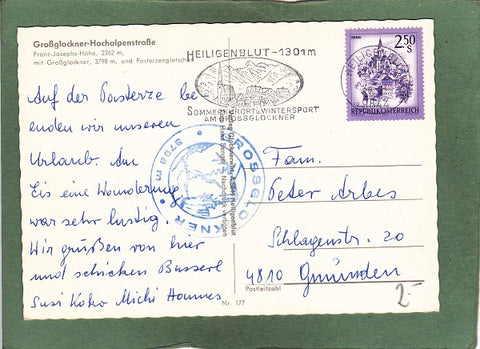 Großglockner-Hochalpenstraße
Franz-Josephs-Höhe, 2362 m,
mit Großglockner, 3798 m, und Pasterzengletscher
HEILIGENBLUT - 1301 m
SOMMERSPORT u. WINTERSPORT
AM GROSSGLOCKNER
HEILIGENBLUT
2.50
S
REPUBLIK ÖSTERREICH
Auf der Pasterze be
enden wir unseren
Urlaub. Am
Eis eine Wanderung
war sehr lustig.
Wir grüßen von hier
und schicken Busserl
Susi Koko Michi Hannes
GROSSGLOCKNER
3798 m
Fam.
Peter Arbes
Schlagenstr. 20
4810 Gmünden
Postleitzahl
Nr. 177
2-